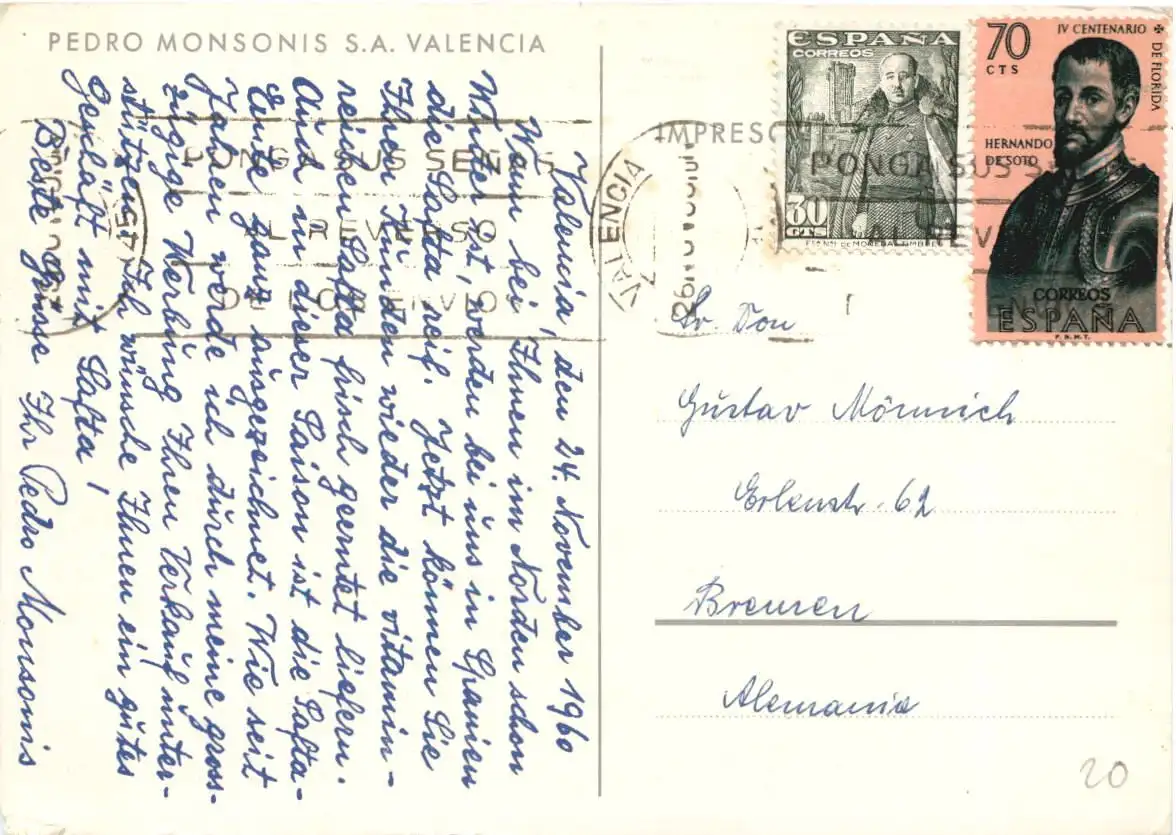 PEDRO MONSONIS S.A. VALENCIA
Valencia, den 24. November 1960
Wenn bei Ihnen im Norden schon
Winter ist, werden bei uns in Spanien
die Safta reif. Jetzt können Sie
Ihren Kunden wieder die vitamin-
reichen Safta frisch geerntet liefern.
Auch in dieser Saison ist die Safta-
Ernte ganz ausgezeichnet. Wie seit
Jahren werde ich durch meine gross-
zügige Werbung Ihren Verkauf unter-
stützen. Ich wünsche Ihnen ein gutes
Geschäft mit Safta!
Beste Grüsse Ihr Pedro Monsonis
PONGA SUS SEÑAS
AL REVERSO
DEL ENVIO
VALENCIA
IMPRESO
ESPAÑA
CORREOS
30
CTS
70
CTS
IV CENTENARIO
DE FLORIDA
HERNANDO
DE SOTO
CORREOS
ESPAÑA
F.N.M.T.
PONGA SUS S
AL REV
Sr. Don
Gustav Mönnich
Erlenstr. 62
Bremen
Alemania
20